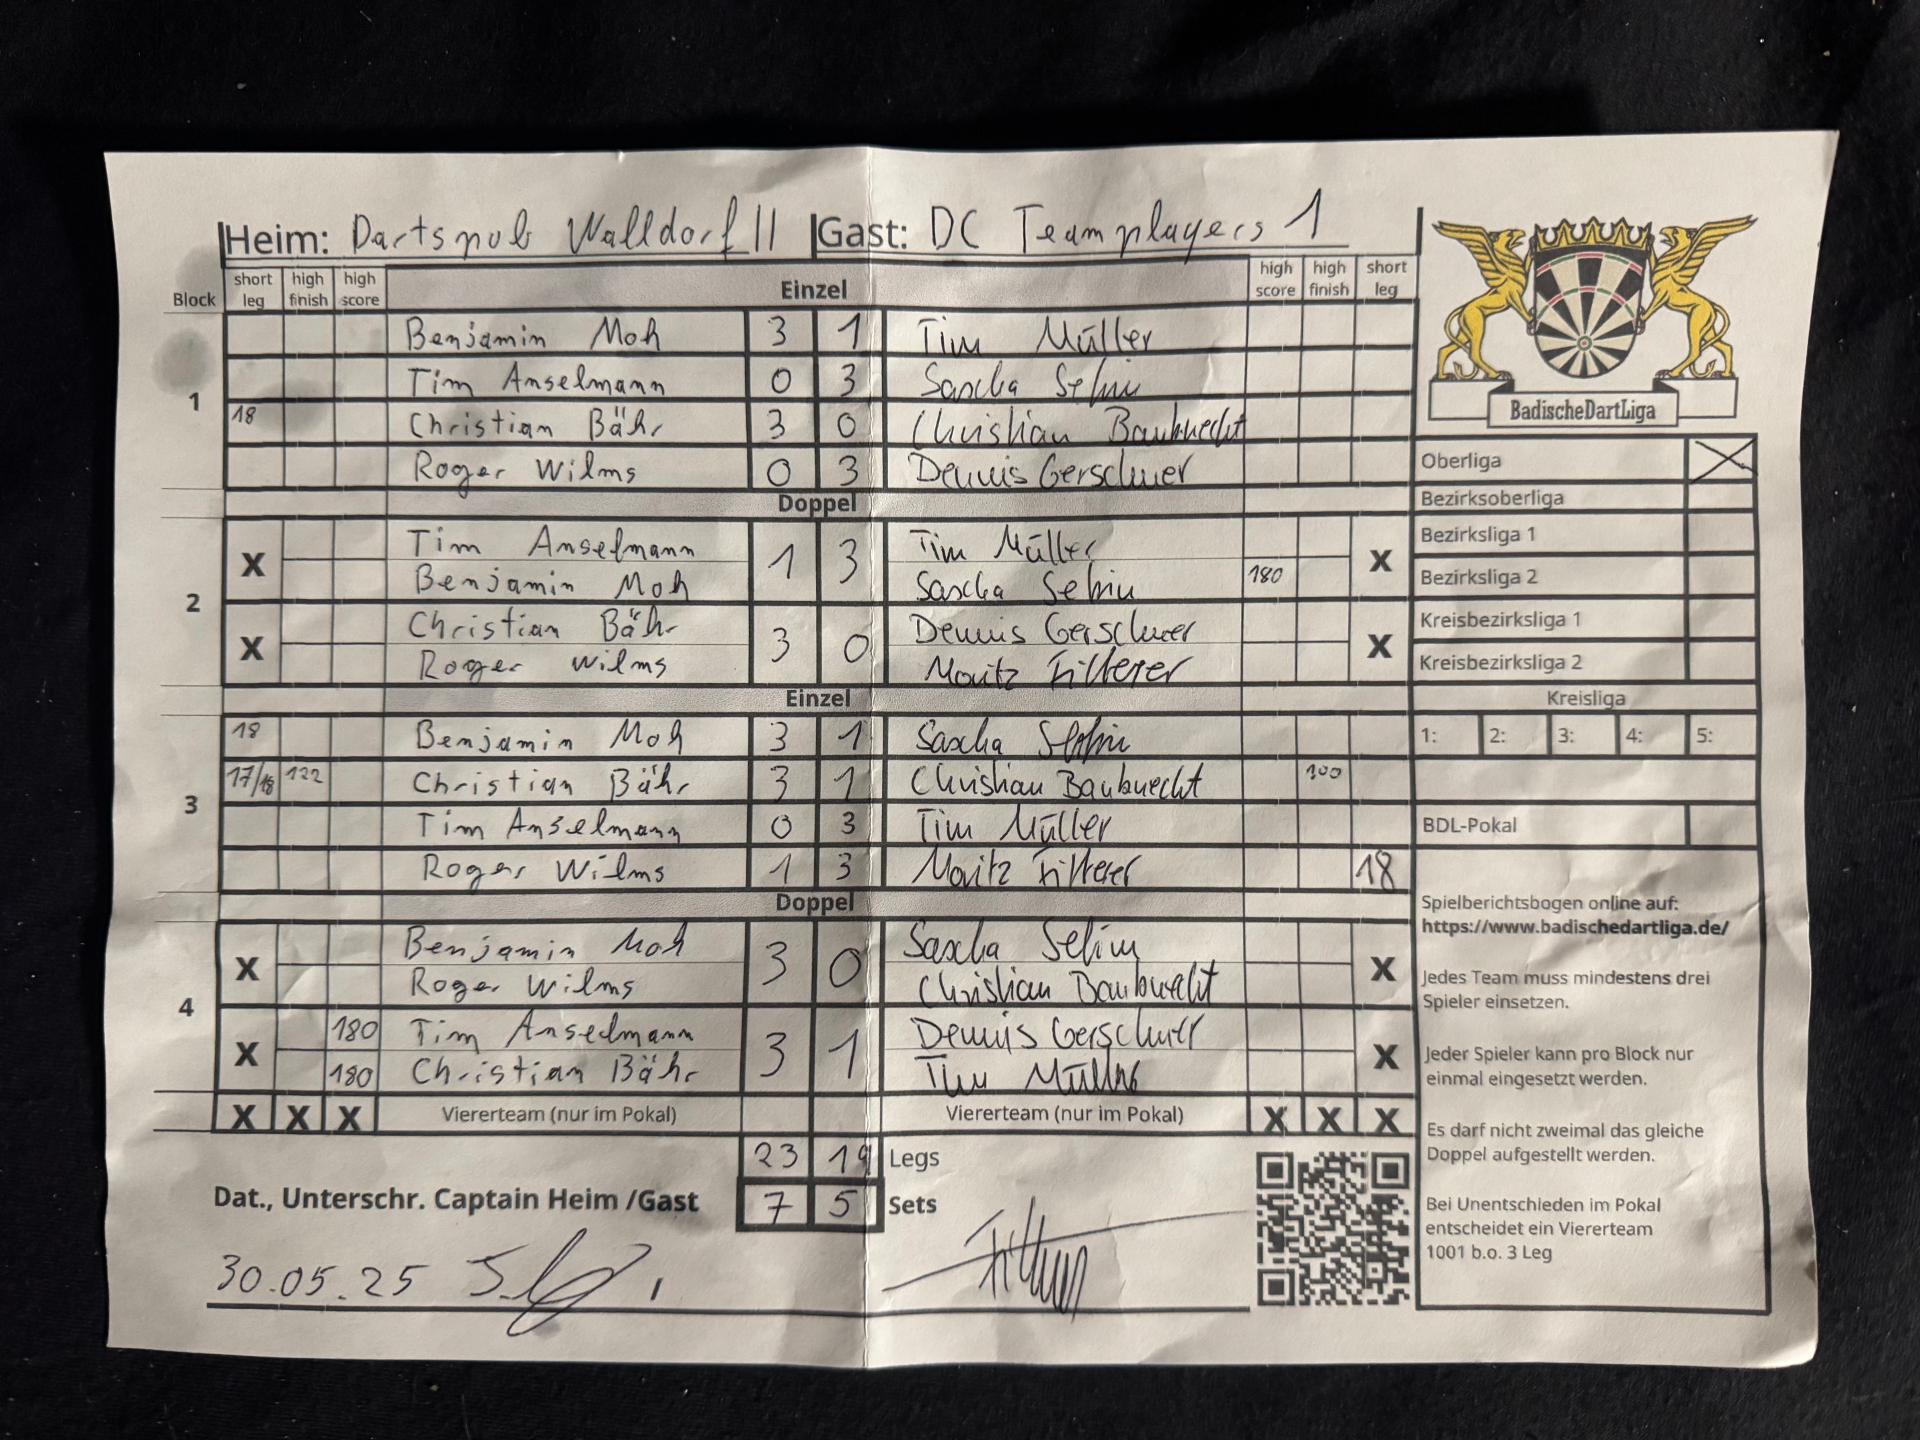 Heim: Dartspub Walldorf II Gast: DC Teamplayers 1
Block short leg high finish high score Einzel high score high finish short leg
1
Benjamin Moh 3 1 Tim Müller
Tim Anselmann 0 3 Sascha Selim
18 Christian Bähr 3 0 Christian Bauknecht
Roger Wilms 0 3 Dennis Gerschner
Doppel
2
X Tim Anselmann 1 3 Tim Müller X
Benjamin Moh Sascha Selim 180
X Christian Bähr 3 0 Dennis Gerschner X
Roger Wilms Moritz Fitterer
Einzel
3
18 Benjamin Moh 3 1 Sascha Selim
17/18 122 Christian Bähr 3 1 Christian Bauknecht 100
Tim Anselmann 0 3 Tim Müller
Roger Wilms 1 3 Moritz Fitterer 18
Doppel
4
X Benjamin Moh 3 0 Sascha Selim X
Roger Wilms Christian Bauknecht
X 180 Tim Anselmann 3 1 Dennis Gerschner X
180 Christian Bähr Tim Müller
X X X Vierteam (nur im Pokal) Viererteam (nur im Pokal) X X X
23 19 Legs
Dat., Unterschr. Captain Heim /Gast 7 5 Sets
30.05.25
BadischeDartLiga
Oberliga X
Bezirksoberliga
Bezirksliga 1
Bezirksliga 2
Kreisbezirksliga 1
Kreisbezirksliga 2
Kreisliga
1: 2: 3: 4: 5:
BDL-Pokal
Spielberichtsbogen online auf:
https://www.badischedartliga.de/
Jedes Team muss mindestens drei
Spieler einsetzen.
Jeder Spieler kann pro Block nur
einmal eingesetzt werden.
Es darf nicht zweimal das gleiche
Doppel aufgestellt werden.
Bei Unentschieden im Pokal
entscheidet ein Viererteam
1001 b.o. 3 Leg